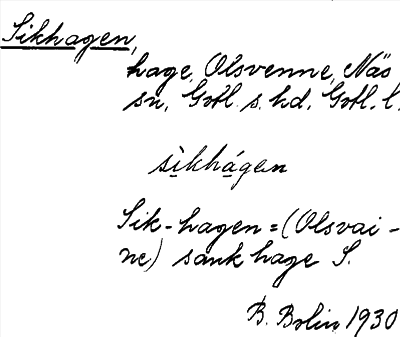 Sikhagen,
hage, Olsvenne, Näs
sn, Gotl. s. hd, Gotl. l.
sìkhágen
Sik-hagen = (Olsvai-
ne) sank hage S.
B. Bolin 1930